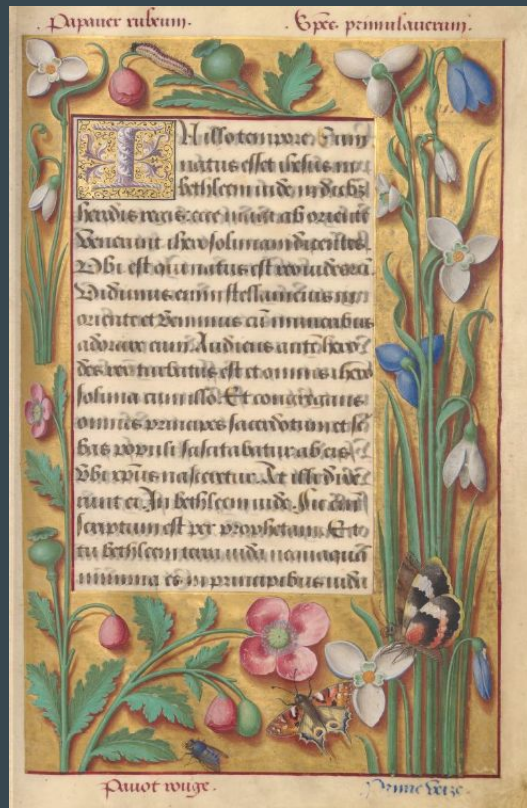 Papauer rubeum.
Spēs primulauerum.
IN illo tempore. Cum
natus esset ihesus in
bethleem iude in diebꝰ
herodis regis: ecce magi ab oriente
Venerunt iherosolimam dicentes.
Vbi est qui natus est rex iudeorū.
Vidimus enim stellam eius in
oriente et Venimus cū muneribus
adorare eum. Audiens autē hero
des rex turbatus est et omnis ihero
solima cum illo. Et congregans
omnes principes sacerdotum et sc̄
bas populi sciscitabatur ab eis
Vbi xp̄us nasceretur. At illi dixe
runt ei. In bethleem iude. Sic enī
scriptum est per prophetam. Et
tu bethleem terra iuda
minima es in principibus iuda
Pauot rouge.
Prime